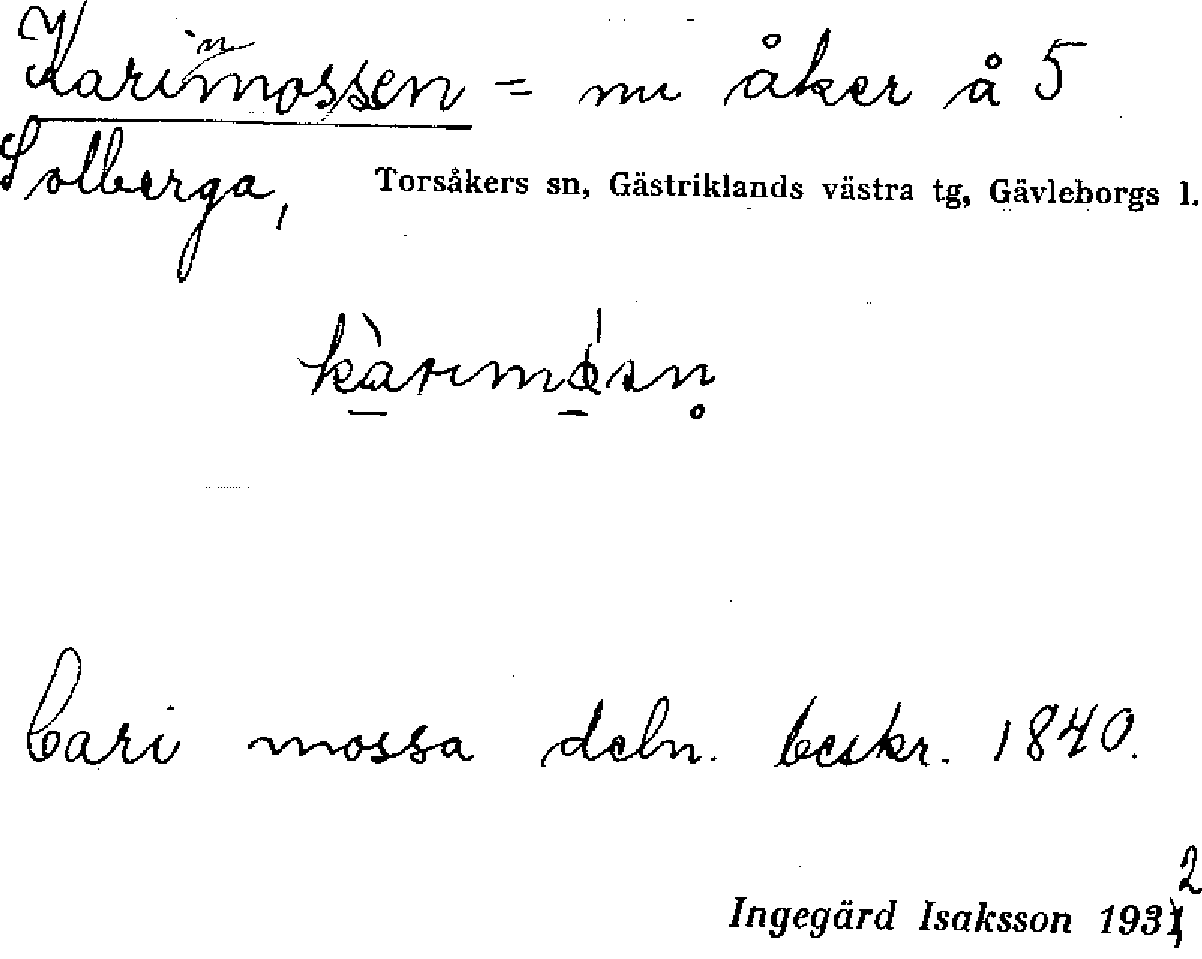 Karinmossen = nu åker å 5
Solberga,
Torsåkers sn, Gästriklands västra tg, Gävleborgs l.
Cari mossa deln. beskr. 1840.
Ingegärd Isaksson 1932